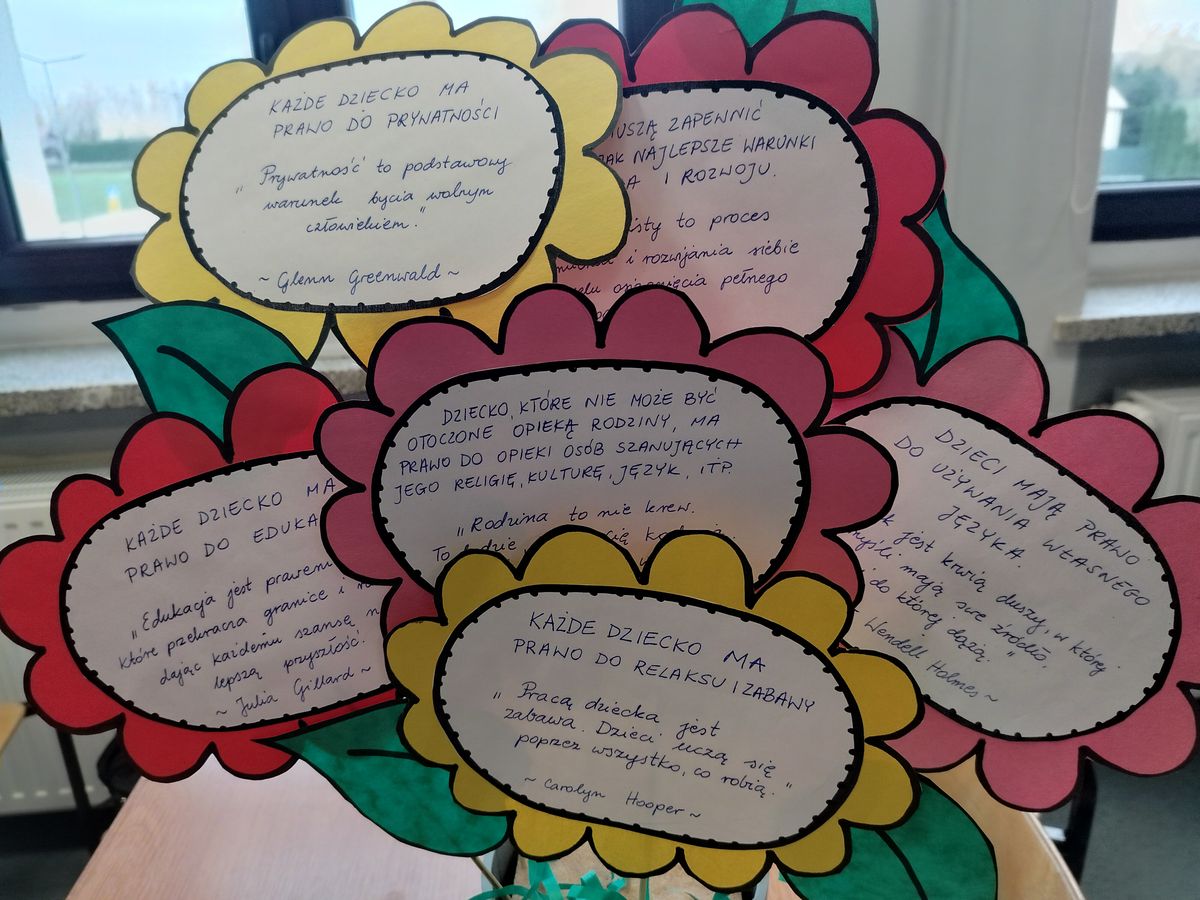 KAŻDE DZIECKO MA
PRAWO DO PRYWATNOŚCI
„Prywatność to podstawowy
warunek bycia wolnym
człowiekiem."
~ Glenn Greenwald ~
ZAPEWNIĆ
NAJLEPSZE WARUNKI
I ROZWOJU.
to proces
i rozwijania siebie
pełnego
DZIECKO, KTÓRE NIE MOŻE BYĆ
OTOCZONE OPIEKĄ RODZINY, MA
PRAWO DO OPIEKI OSÓB SZANUJĄCYCH
JEGO RELIGIĘ, KULTURĘ, JĘZYK, ITP.
„Rodzina to nie krew.
To
KAŻDE DZIECKO MA
PRAWO DO EDUKA
„Edukacja jest prawem
które przekracza granice i
dając każdemu szansę n
lepszą przyszłość.
~ Julia Gillard ~
DZIECI MAJĄ PRAWO
DO UŻYWANIA WŁASNEGO
JĘZYKA.
k jest krwią duszy, w której
myśli mają swe źródło,
i do której dążą."
Wendell Holmes ~
KAŻDE DZIECKO MA
PRAWO DO RELAKSU I ZABAWY
„Pracą dziecka jest
zabawa. Dzieci uczą się
poprzez wszystko, co robią."
~ Carolyn Hooper ~